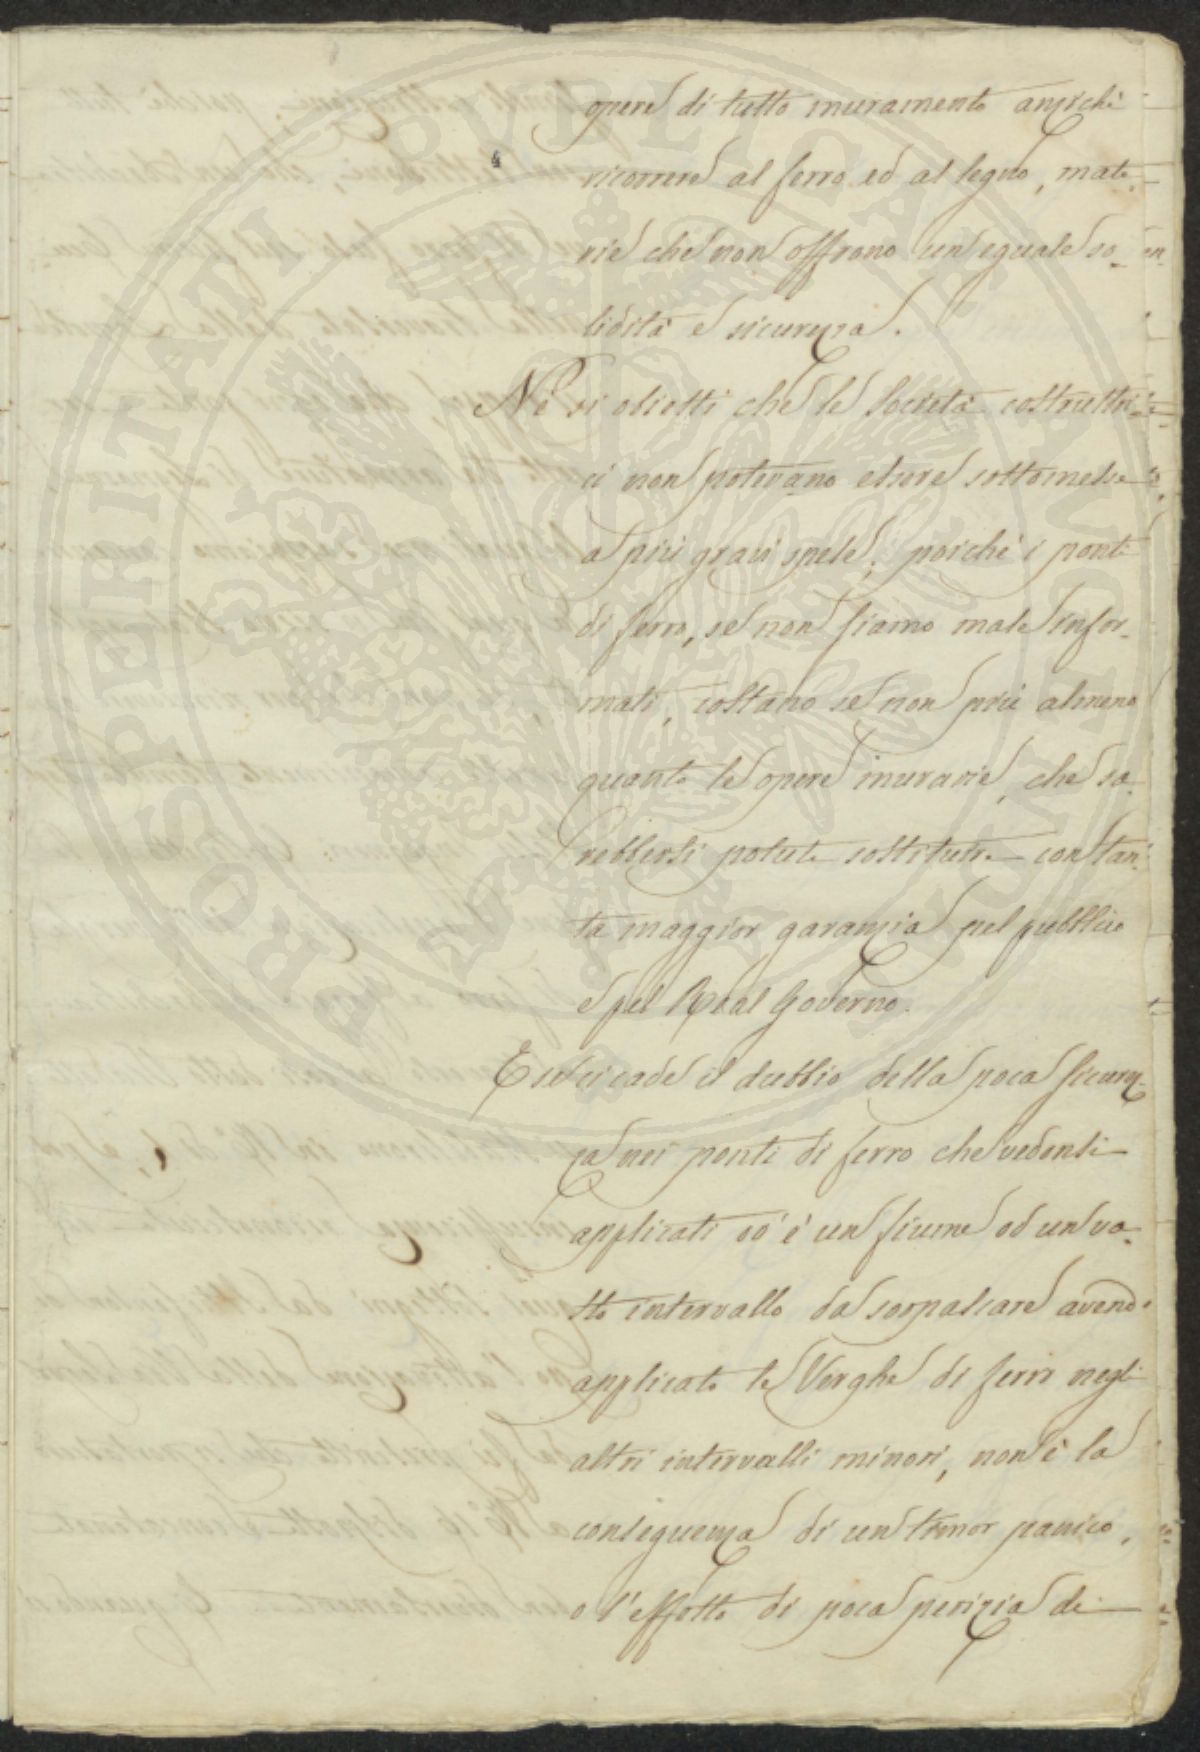 opere di tutto muramento anzichè
ricorrere al ferro ed al legno, mate-
rie che non offrono un eguale so-
lidità e sicurezza.
Nè si obietti che le Società costruttri-
ci non potevano essere sottomesse
a più gravi spese; poichè i ponti
di ferro, se non siamo male infor-
mati, costano se non più almeno
quanto le opere murarie, che sa-
rebbersi potute sostituire con tan-
ta maggior garanzia pel pubblico
e pel Real Governo.
E se ci cade il dubbio della poca sicurez-
za nei ponti di ferro che vedonsi
applicati ov'è un fiume od un va-
sto intervallo da sorpassare avendo
applicato le Verghe di ferro negli
altri intervalli minori, non è la
conseguenza di un timor panico,
o l'effetto di poca perizia de
PROSPERITATI PVBLICAE